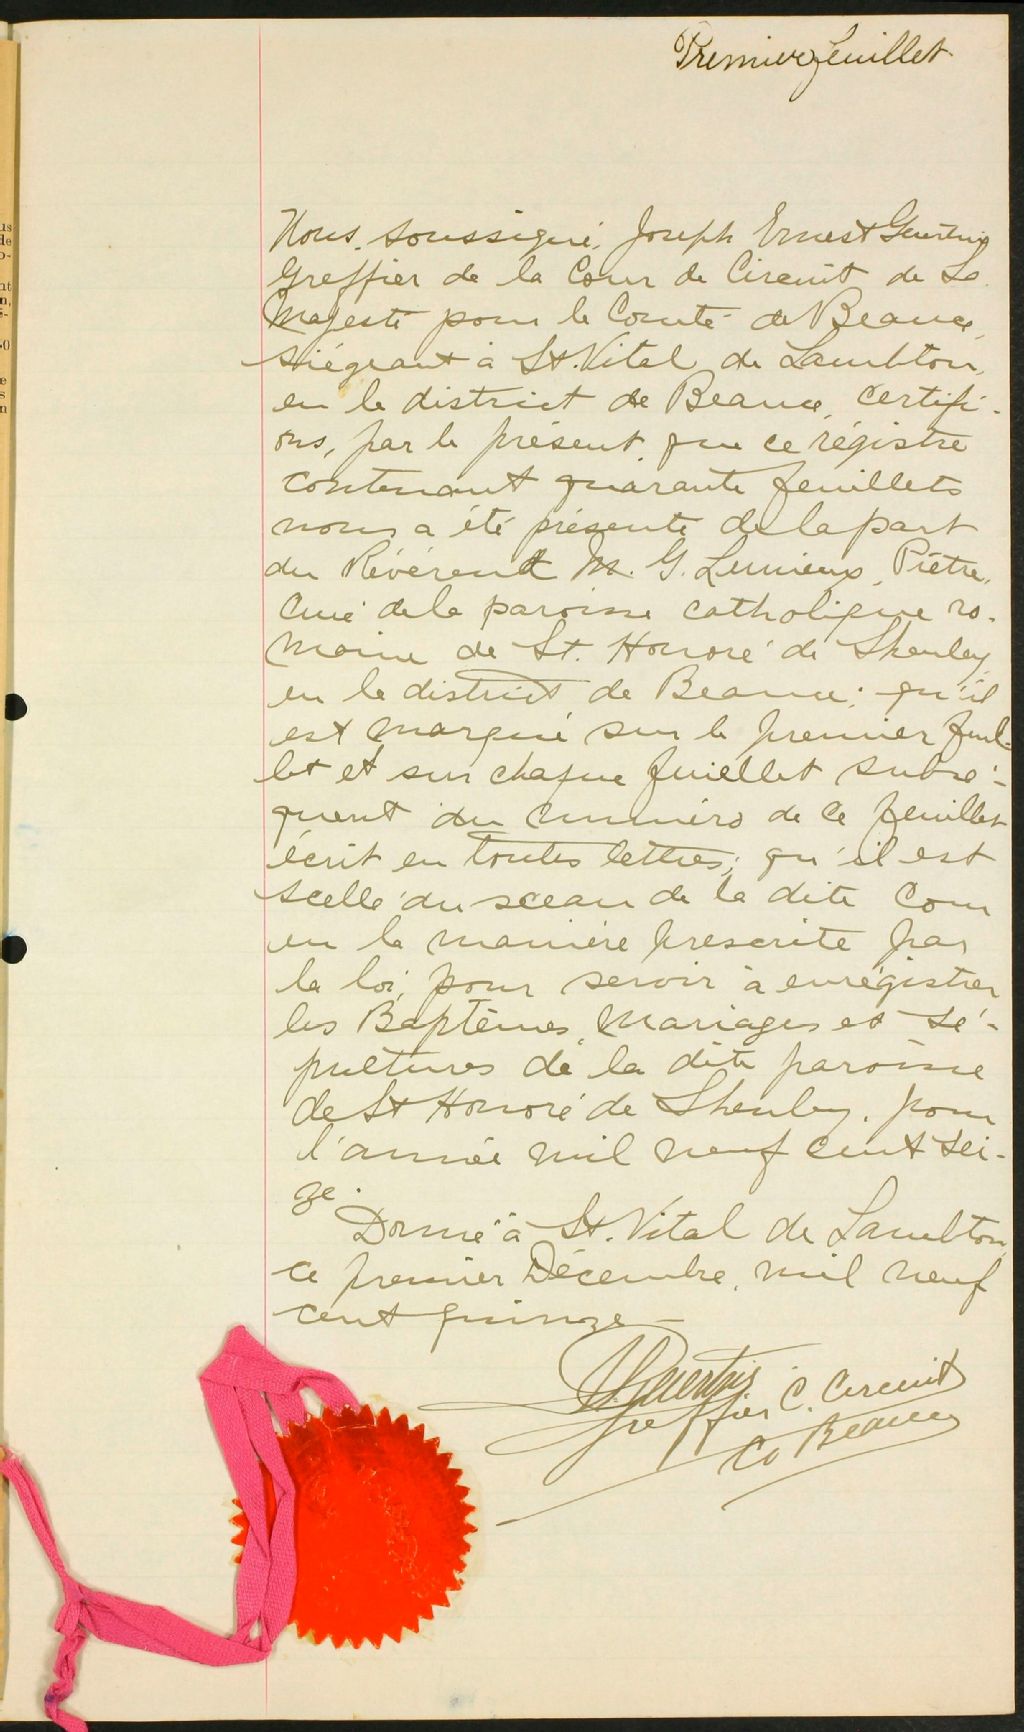 Premier feuillet
Nous, soussigné, Joseph Ernest Guertin
Greffier de la Cour de Circuit de Sa
Majesté pour le Comté de Beauce,
siégeant à St. Vital de Lambton,
en le district de Beauce, certifi-
ons, par le présent, que ce régistre
contenant quarante feuillets
nous a été présenté de la part
du Révérend M. G. Lemieux, Prêtre,
Curé de la paroisse catholique ro-
maine de St. Honoré de Shenley,
en le district de Beauce; qu'il
est marqué sur le premier feuil-
let et sur chaque feuillet subsé-
quent du numéro de ce feuillet
écrit en toutes lettres; qu'il est
scellé du sceau de la dite Cour
en la manière prescrite par
la loi, pour servir à enrégistrer
les Baptêmes, Mariages et Sé-
pultures de la dite paroisse
de St Honoré de Shenley, pour
l'année mil neuf cent sei-
ze.
Donné à St. Vital de Lambton,
ce premier Décembre, mil neuf
cent quinze —
Guertin
Greffier C. Circuit
Co Beauce